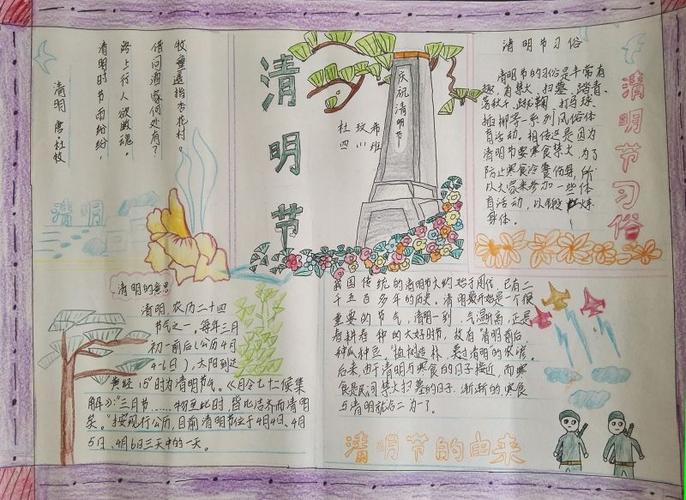 清明节
庆祝清明节
杜玫希
四川班
清明 唐·杜牧
清明时节雨纷纷，
路上行人欲断魂。
借问酒家何处有？
牧童遥指杏花村。
清明
清明节习俗
清明节的习俗是丰常有
趣，有禁火、扫墓、踏青、
荡秋千、蹴鞠、打马球、
插柳等一系列风俗体
育活动。相传这是因为
清明节要寒食禁火，为了
防止寒食冷餐伤身，所
以大家来参加一些体
育活动，以锻炼
身体。
清明节习俗
清明的意思
清明，农历二十四
节气之一，每年三月
初一前后(公历4月
4-6日)，太阳到达
黄经15°时为清明节气。《月令七十二候集
解》：“三月节……物至此时，皆以洁齐而清明
矣。”按现行公历，目前清明节位于4月4、4月
5日、4月6日三天中的一天。
我国传统的清明节大约始于周代，已有二
千五百多年的历史。清明最开始是一个很
重要的节气，清明一到，气温升高，正是
春耕春种的大好时节，故有“清明前后，
种瓜种豆”。植树造林，莫过清明的农谚。
后来，由于清明与寒食的日子接近，而寒
食是民间禁火扫墓的日子，渐渐的，寒食
与清明就合二为一了。
清明节的由来